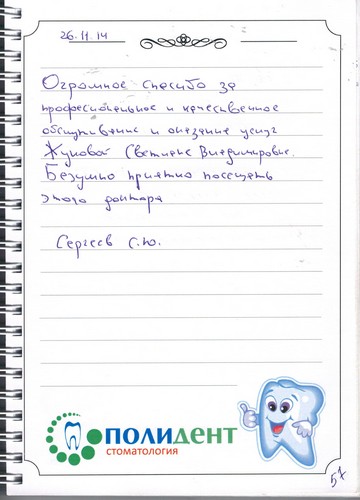 26.11.14
Огромное спасибо за
профессиональное и качественное
обслуживание и оказание услуг
Жуковой Светлане Владимировне.
Безумно приятно посещать
этого доктора
Сергеев С.Ю.
ПОЛИДЕНТ
СТОМАТОЛОГИЯ
57